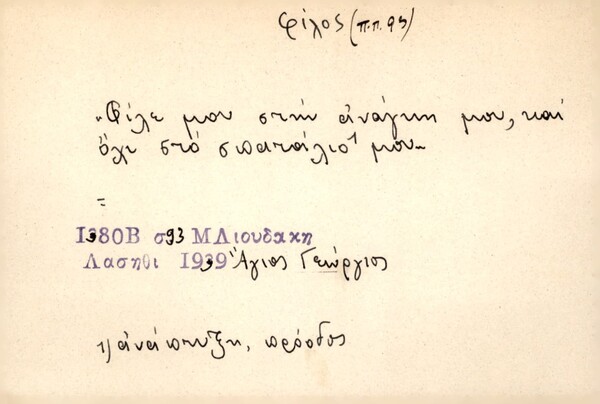 φίλος (π.π. 93)
"Φίλε μου στὴν ἀνάγκη μου, καὶ
ὄχι στὸ σπατάλιο¹ μου"
=
1380Β σ93 ΜΛιουδακη
Λασηθι 1939 Ἅγιος Γεώργιος
1) ἀνάπτυξη, πρόοδος